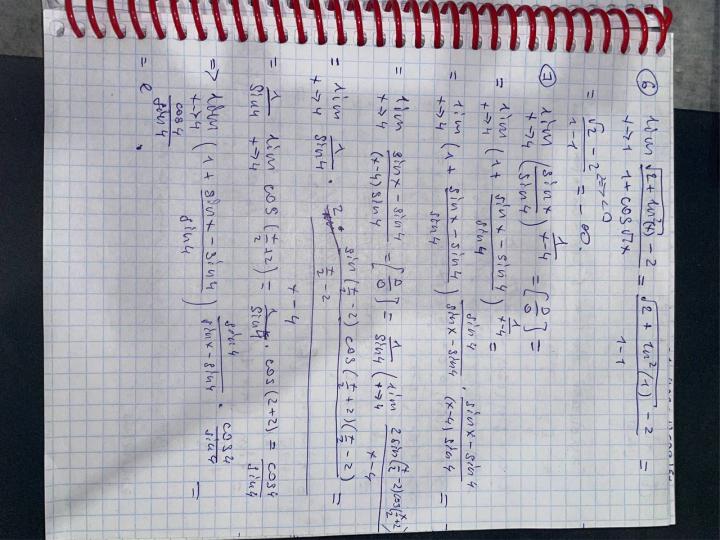 ⑥ lim_{x→1} (√(2 + ln²(x)) - 2) / (1 + cos πx) = (√(2 + ln²(1)) - 2) / (1-1) =
= (√2 - 2 => <0) / (1-1) = -∞.
⑦ lim_{x→4} (sin x / sin 4)^{1/(x-4)} = [0/0] =
= lim_{x→4} (1 + (sin x - sin 4)/sin 4)^{1/(x-4)} =
= lim_{x→4} (1 + (sin x - sin 4)/sin 4)^{sin 4/(sin x - sin 4) · (sin x - sin 4)/((x-4) sin 4)} =
= lim_{x→4} (sin x - sin 4)/((x-4) sin 4) = [0/0] = 1/sin 4 lim_{x→4} (2 sin(x/2 - 2) cos(x/2 + 2))/(x-4)
= lim_{x→4} 1/sin 4 · 2 · (sin(x/2 - 2) cos(x/2 + 2)(x/2 - 2))/(x/2 - 2) / (x-4) =
= 1/sin 4 lim_{x→4} cos(x/2 + 2) = 1/sin 4 · cos(2+2) = cos 4/sin 4
=> lim_{x→4} (1 + (sin x - sin 4)/sin 4)^{sin 4/(sin x - sin 4) · cos 4/sin 4} =
= e^{cos 4/sin 4}.